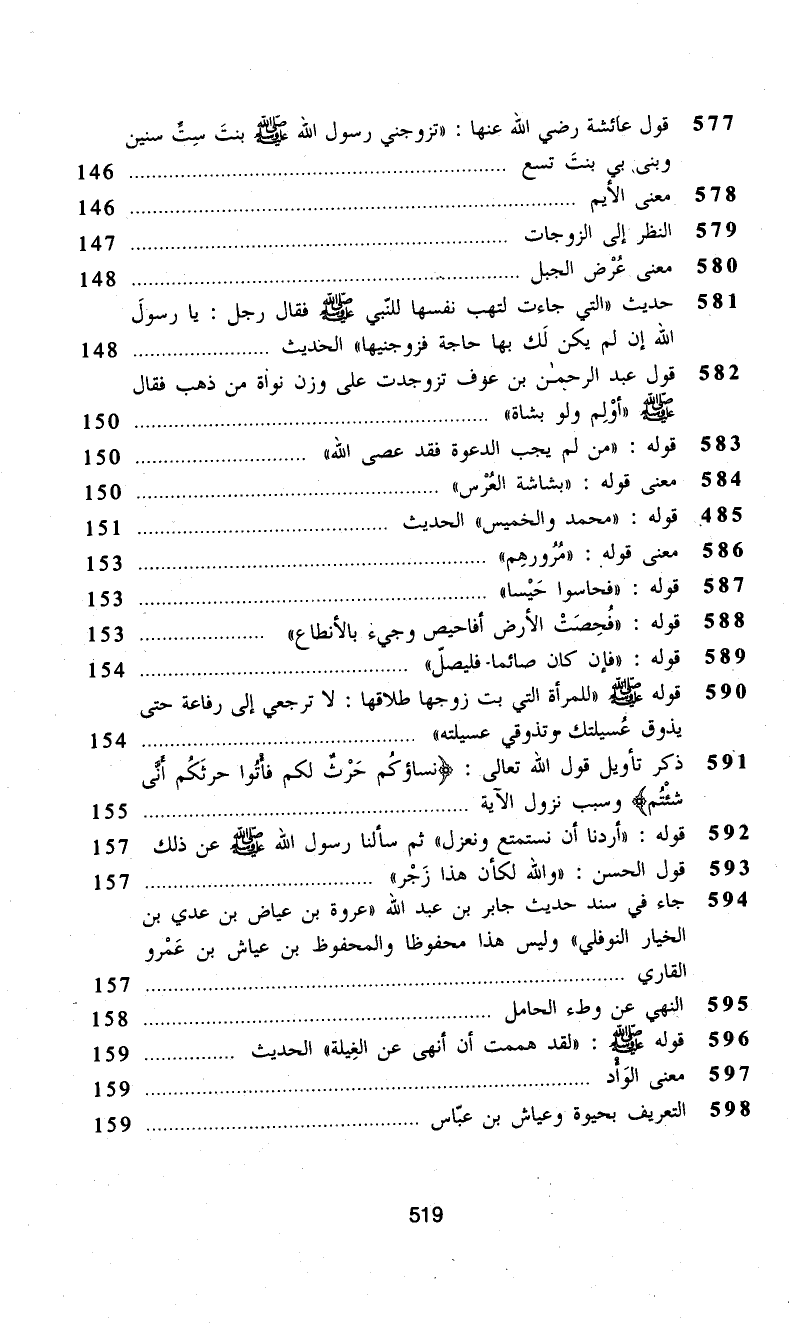 577 قول عائشة رضي الله عنها : «تزوجني رسول الله ﷺ بنتَ سِتٍّ سنين
وبنى بي بنتَ تسع ........ 146
578 معنى الأيم ........ 146
579 النظر إلى الزوجات ........ 147
580 معنى عُرْض الجبل ........ 148
581 حديث «التي جاءت لتهب نفسها للنّبي ﷺ فقال رجل : يا رسولَ
الله إن لم يكن لَك بها حاجة فزوجنيها» الحديث ........ 148
582 قول عبد الرحمٰن بن عوف تزوجدت على وزن نواة من ذهب فقال
ﷺ «أوْلِم ولو بشاة» ........ 150
583 قوله : «من لم يجب الدعوة فقد عصى الله» ........ 150
584 معنى قوله : «بشاشة العُرْس» ........ 150
485 قوله : «محمد والخميس» الحديث ........ 151
586 معنى قوله : «مُرُورهِم» ........ 153
587 قوله : «فحاسوا حَيْسا» ........ 153
588 قوله : «فُحِصَتْ الأرض أفاحيص وجيء بالأنطاع» ........ 153
589 قوله : «فإن كان صائما فليصلّ» ........ 154
590 قوله ﷺ «للمرأة التي بت زوجها طلاقها : لا ترجعي إلى رفاعة حتى
يذوق عُسيلتك وتذوقي عسيلته» ........ 154
591 ذكر تأويل قول الله تعالى : ﴿نساؤكُم حَرْثٌ لكم فأْتُوا حرثَكُم أَنَّى
شئْتُم﴾ وسبب نزول الآية ........ 155
592 قوله : «أردنا أن نستمتع ونعزل» ثم سألنا رسول الله ﷺ عن ذلك 157
593 قول الحسن : «والله لكأن هذا زَجْر» ........ 157
594 جاء في سند حديث جابر بن عبد الله «عروة بن عياض بن عدي بن
الخيار النوفلي» وليس هذا محفوظا والمحفوظ بن عياش بن عَمْرو
القاري ........ 157
595 النهي عن وطء الحامل ........ 158
596 قوله ﷺ : «لقد هممت أن أنهى عن الغِيلة» الحديث ........ 159
597 معنى الوَأْد ........ 159
598 التعريف بحيوة وعياش بن عبّاس ........ 159
519